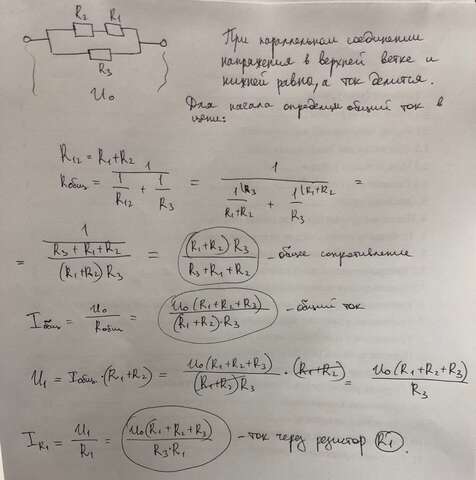 R₂ R₁
R₃
U₀
При параллельном соединении
напряжения в верхней ветке и
нижней равно, а ток делится.
Для начала определим общий ток в
цепи:
R₁₂ = R₁+R₂
Rобщ = 1/(1/R₁₂ + 1/R₃) = 1/(1\R₃/(R₁+R₂) + 1\R₁+R₂/R₃) =
= 1/((R₃+R₁+R₂)/((R₁+R₂)R₃)) = (R₁+R₂)R₃/(R₃+R₁+R₂) - общее сопротивление
Iобщ = U₀/Rобщ = U₀(R₁+R₂+R₃)/((R₁+R₂)·R₃) - общий ток
U₁ = Iобщ·(R₁+R₂) = U₀(R₁+R₂+R₃)/((R₁+R₂)R₃) · (R₁+R₂) = U₀(R₁+R₂+R₃)/R₃
I_R₁ = U₁/R₁ = U₀(R₁+R₂+R₃)/(R₃·R₁) - ток через резистор R₁.